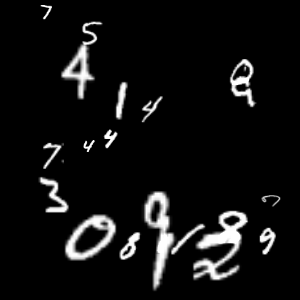 7
5
4
1 4 8
7 4 4
3
0 8 9 1 8 2 9 7